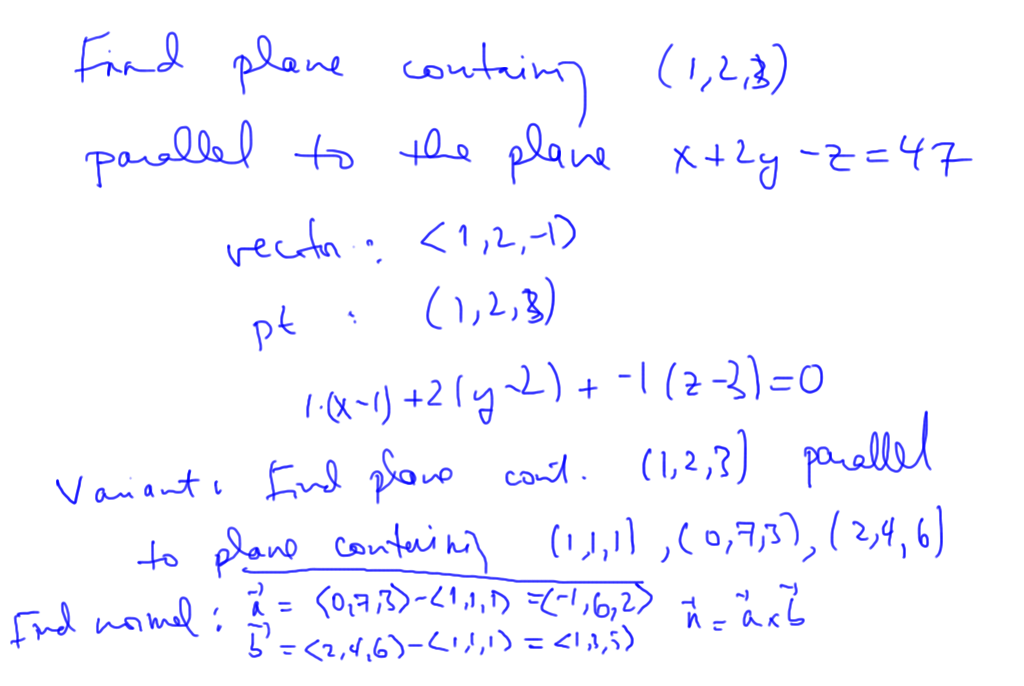 Find plane containing (1,2,3)
parallel to the plane x+2y-z=47
vector: <1,2,-1>
pt : (1,2,3)
1·(x-1)+2(y-2)+-1(z-3)=0
Variant: Find plane cont. (1,2,3) parallel
to plane containing (1,1,1),(0,7,3),(2,4,6)
Find normal: a⃗ = <0,7,3>-<1,1,1>=<-1,6,2> n⃗ = a⃗×b⃗
b⃗ = <2,4,6>-<1,1,1> = <1,3,5>